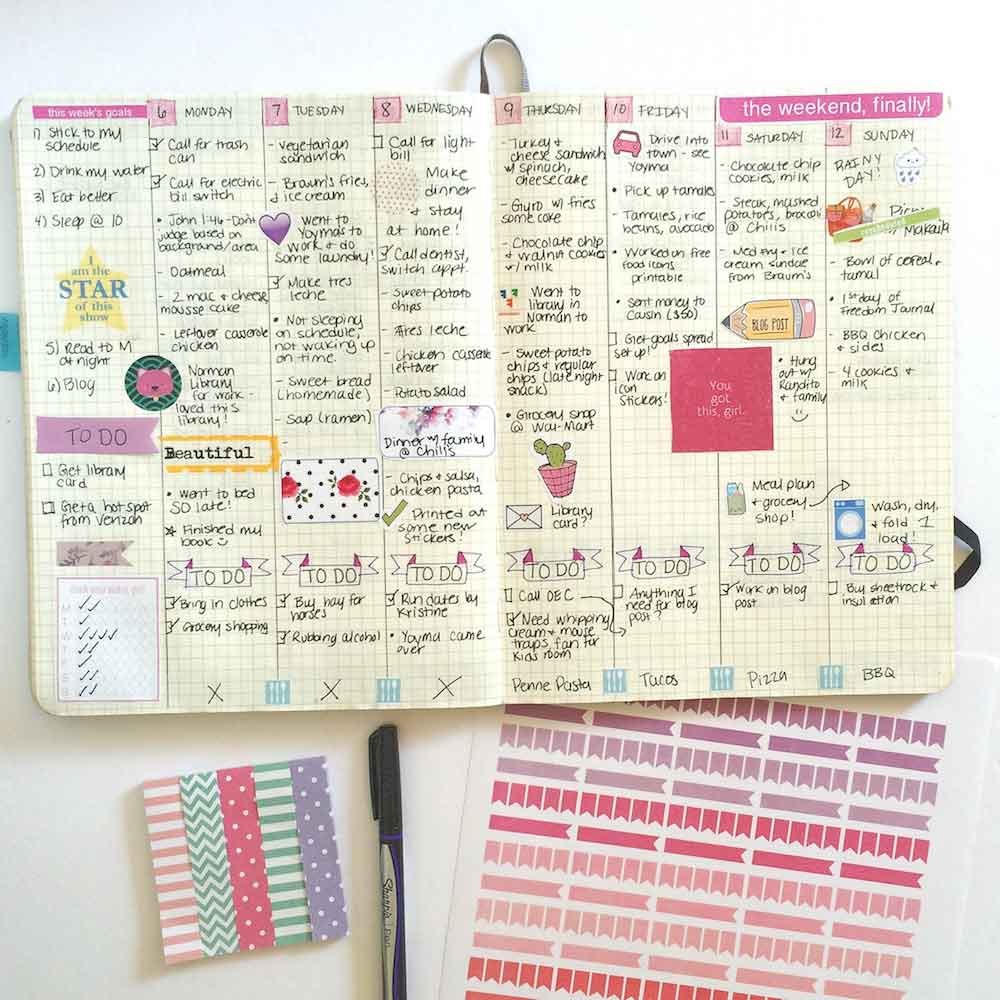 this week's goals
1) Stick to my
schedule
2) Drink my water
3) Eat better
4) Sleep @ 10
I
am the
STAR
of this
show
5) Read to M
at night
6) Blog
TO DO
Get library
card
Get a hot spot
from Verizon
M
T
W
6 MONDAY
Call for trash
can
Call for electric
bill switch
• John 1:46 - Don't
judge based on
background/area
- Oatmeal
- 2 mac & cheese,
mousse cake
- Leftover casserole
chicken
Norman
Library
for work -
loved this
library!
Beautiful
• Went to bed
SO late!
Finished my
book
TO DO
Bring in clothes
Grocery shopping
X
7 TUESDAY
- Vegetarian
sandwich
- Braum's fries,
& ice cream
Went to
Yoymas to
work & do
some laundry!
Make tres
leche
• Not sleeping
on schedule
not waking up
on time.
- Sweet bread
(homemade)
- Soup (ramen)
-
TO DO
Buy hay for
horses
Rubbing alcohol
X
8 WEDNESDAY
Call for light
bill
Make
dinner
& stay
at home!
Call dentist,
switch appt.
- Sweet potato
chips
- Tres leche
- Chicken casserole
leftover
- Potato salad
Dinner w/ family
@ Chilis
- Chips & salsa,
chicken pasta
Printed out
some new
stickers!
TO DO
Run dates by
Kristine
• Yoyma came
over
X
9 THURSDAY
- Turkey &
cheese sandwich
w/ spinach,
cheesecake
- Gyro w/ fries
some cake
- Chocolate chip
& walnut cookies
w/ milk
Went to
library in
Norman to
work
- Sweet potato
chips & regular
chips (late night
snack)
• Grocery shop
@ Wal-Mart
Library
card?
TO DO
Call OEC
Need whipping
cream & mouse
traps, fan for
kids room
Penne Pasta
10 FRIDAY
Drive into
town - see
Yoyma
• Pick up tamales
- Tamales, rice
beans, avocado
• Worked on free
food icons
printable
• Sent money to
cousin ($50)
Get goals spread
set up!
Work on
icon
stickers!
TO DO
Anything I
need for blog
post?
Tacos
the weekend, finally!
11 SATURDAY
- Chocolate chip
cookies, milk
- Steak, mashed
potatoes, broccoli
@ Chilis
- Med fry & ice
cream sundae
from Braum's
BLOG POST
You
got
this, girl.
• Hung
out w/
Randito
& family
Meal plan
& grocery
shop!
TO DO
Work on blog
post
Pizza
12 SUNDAY
RAINY
DAY!
w/ Makaila
- Bowl of cereal &
tamal
• 1st day of
Freedom Journal
- BBQ chicken
& sides
- 4 cookies &
milk
Wash, dry,
& fold 1
load!
TO DO
Buy sheetrock &
insulation
BBQ
Sharpie Pen